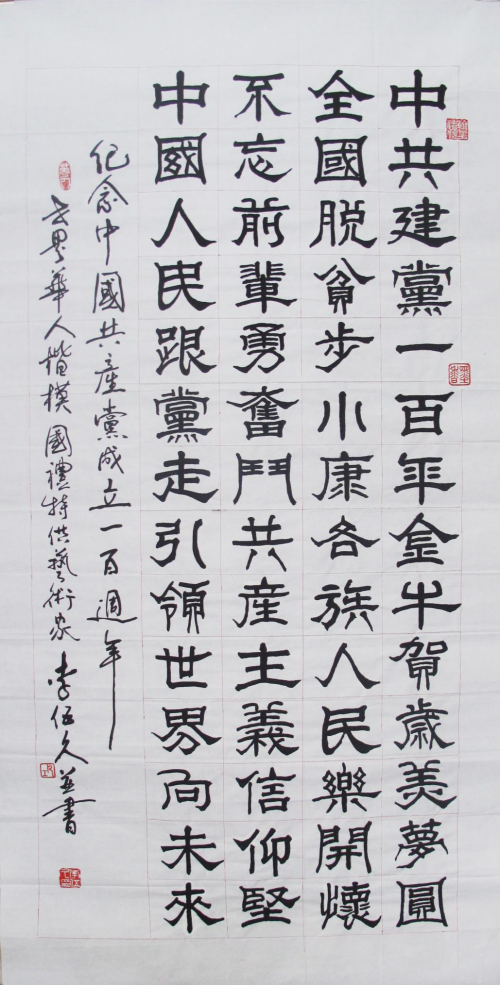 中共建黨一百年金牛賀歲美夢圓
全國脱貧步小康各族人民樂開懷
不忘前輩勇奮鬥共産主義信仰堅
中國人民跟黨走引領世界向未來
纪念中國共產黨成立一百週年
世界華人楷模國禮特供藝術家李伍久并書